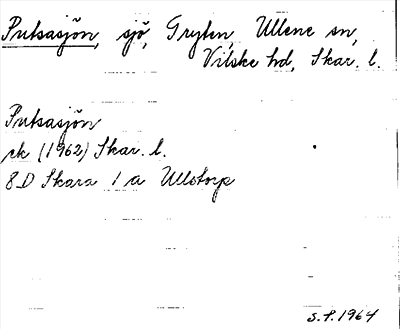 Putsasjön, sjö, Gryten, Ullene sn,
Vilske hd, Skar. l.
Putsasjön
ek (1962) Skar. l.
8D Skara 1 a Ullstorp
S.F. 1964